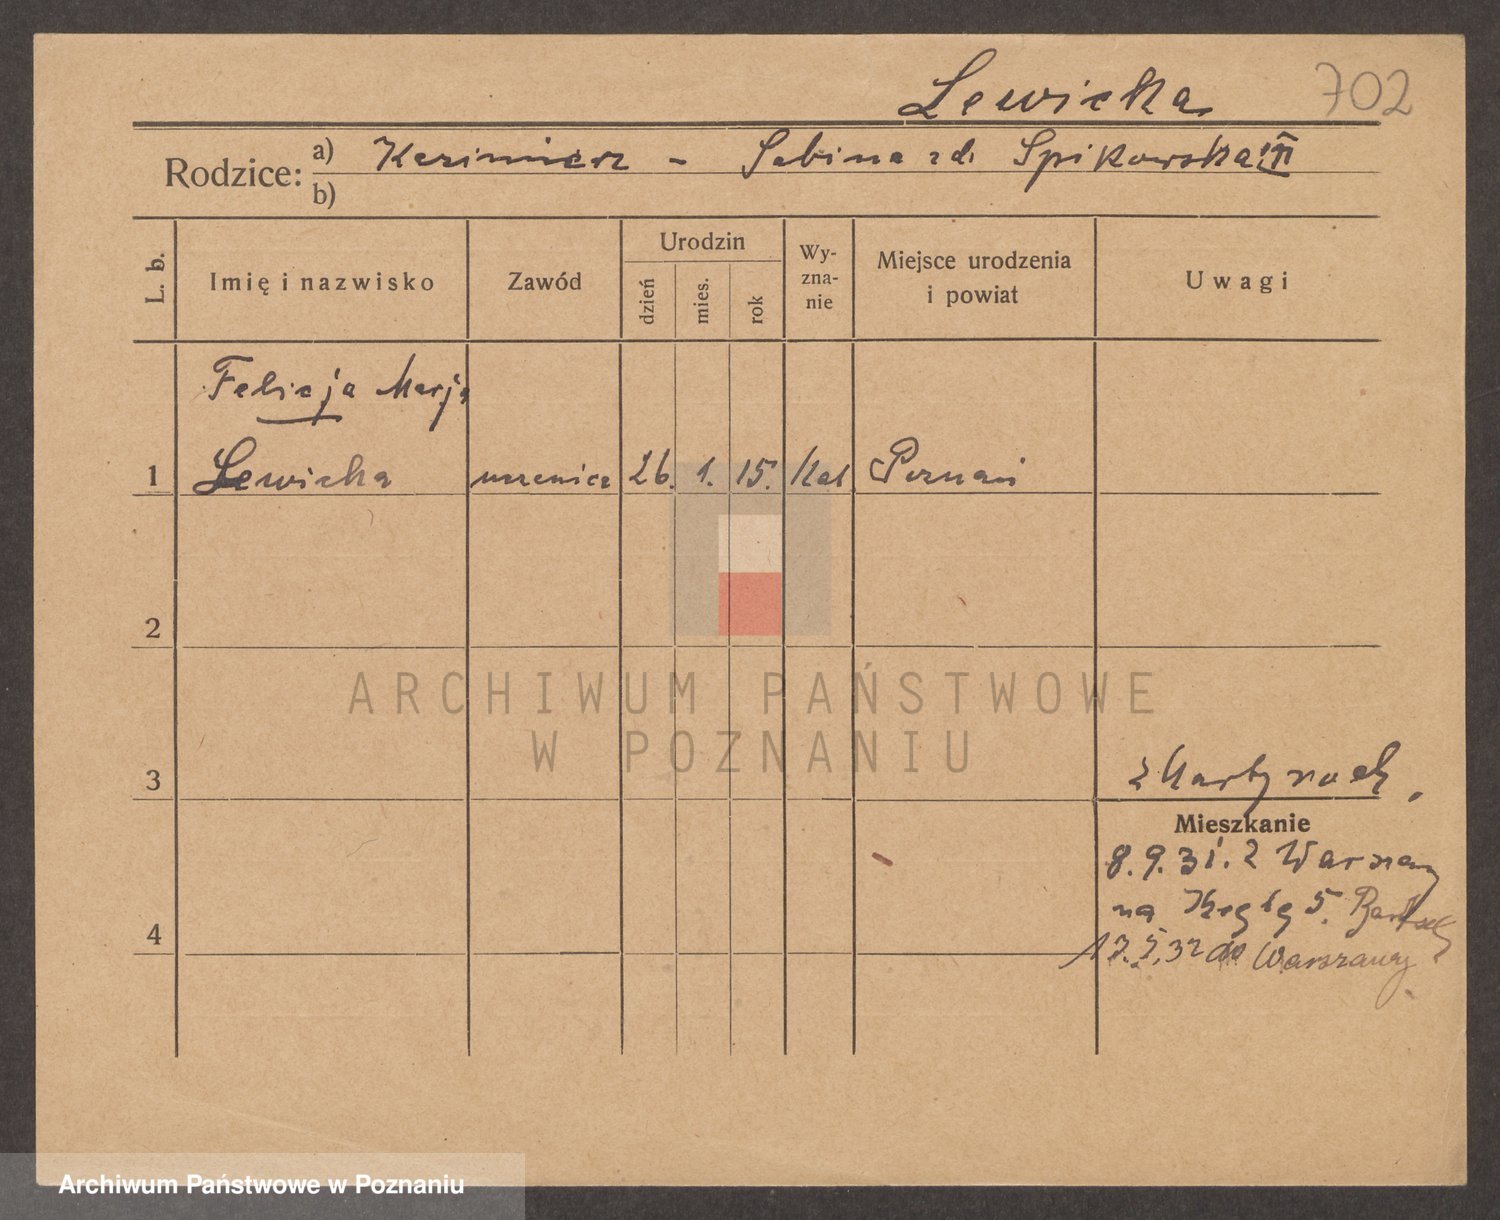 Lewicka 702
Rodzice: a) Kazimierz - Sabina z d. Spikowska
b)
L. b. Imię i nazwisko Zawód Urodzin dzień mies. rok Wy-zna-nie Miejsce urodzenia i powiat Uwagi
Felicja Marja
1 Lewicka uczenica 26. 1. 15. Kat Poznań
2
ARCHIWUM PAŃSTWOWE
W POZNANIU
3
Mieszkanie
8.9.31. z Warszawy
na 5.
4
17.5.32 do Warszawy
Archiwum Państwowe w Poznaniu